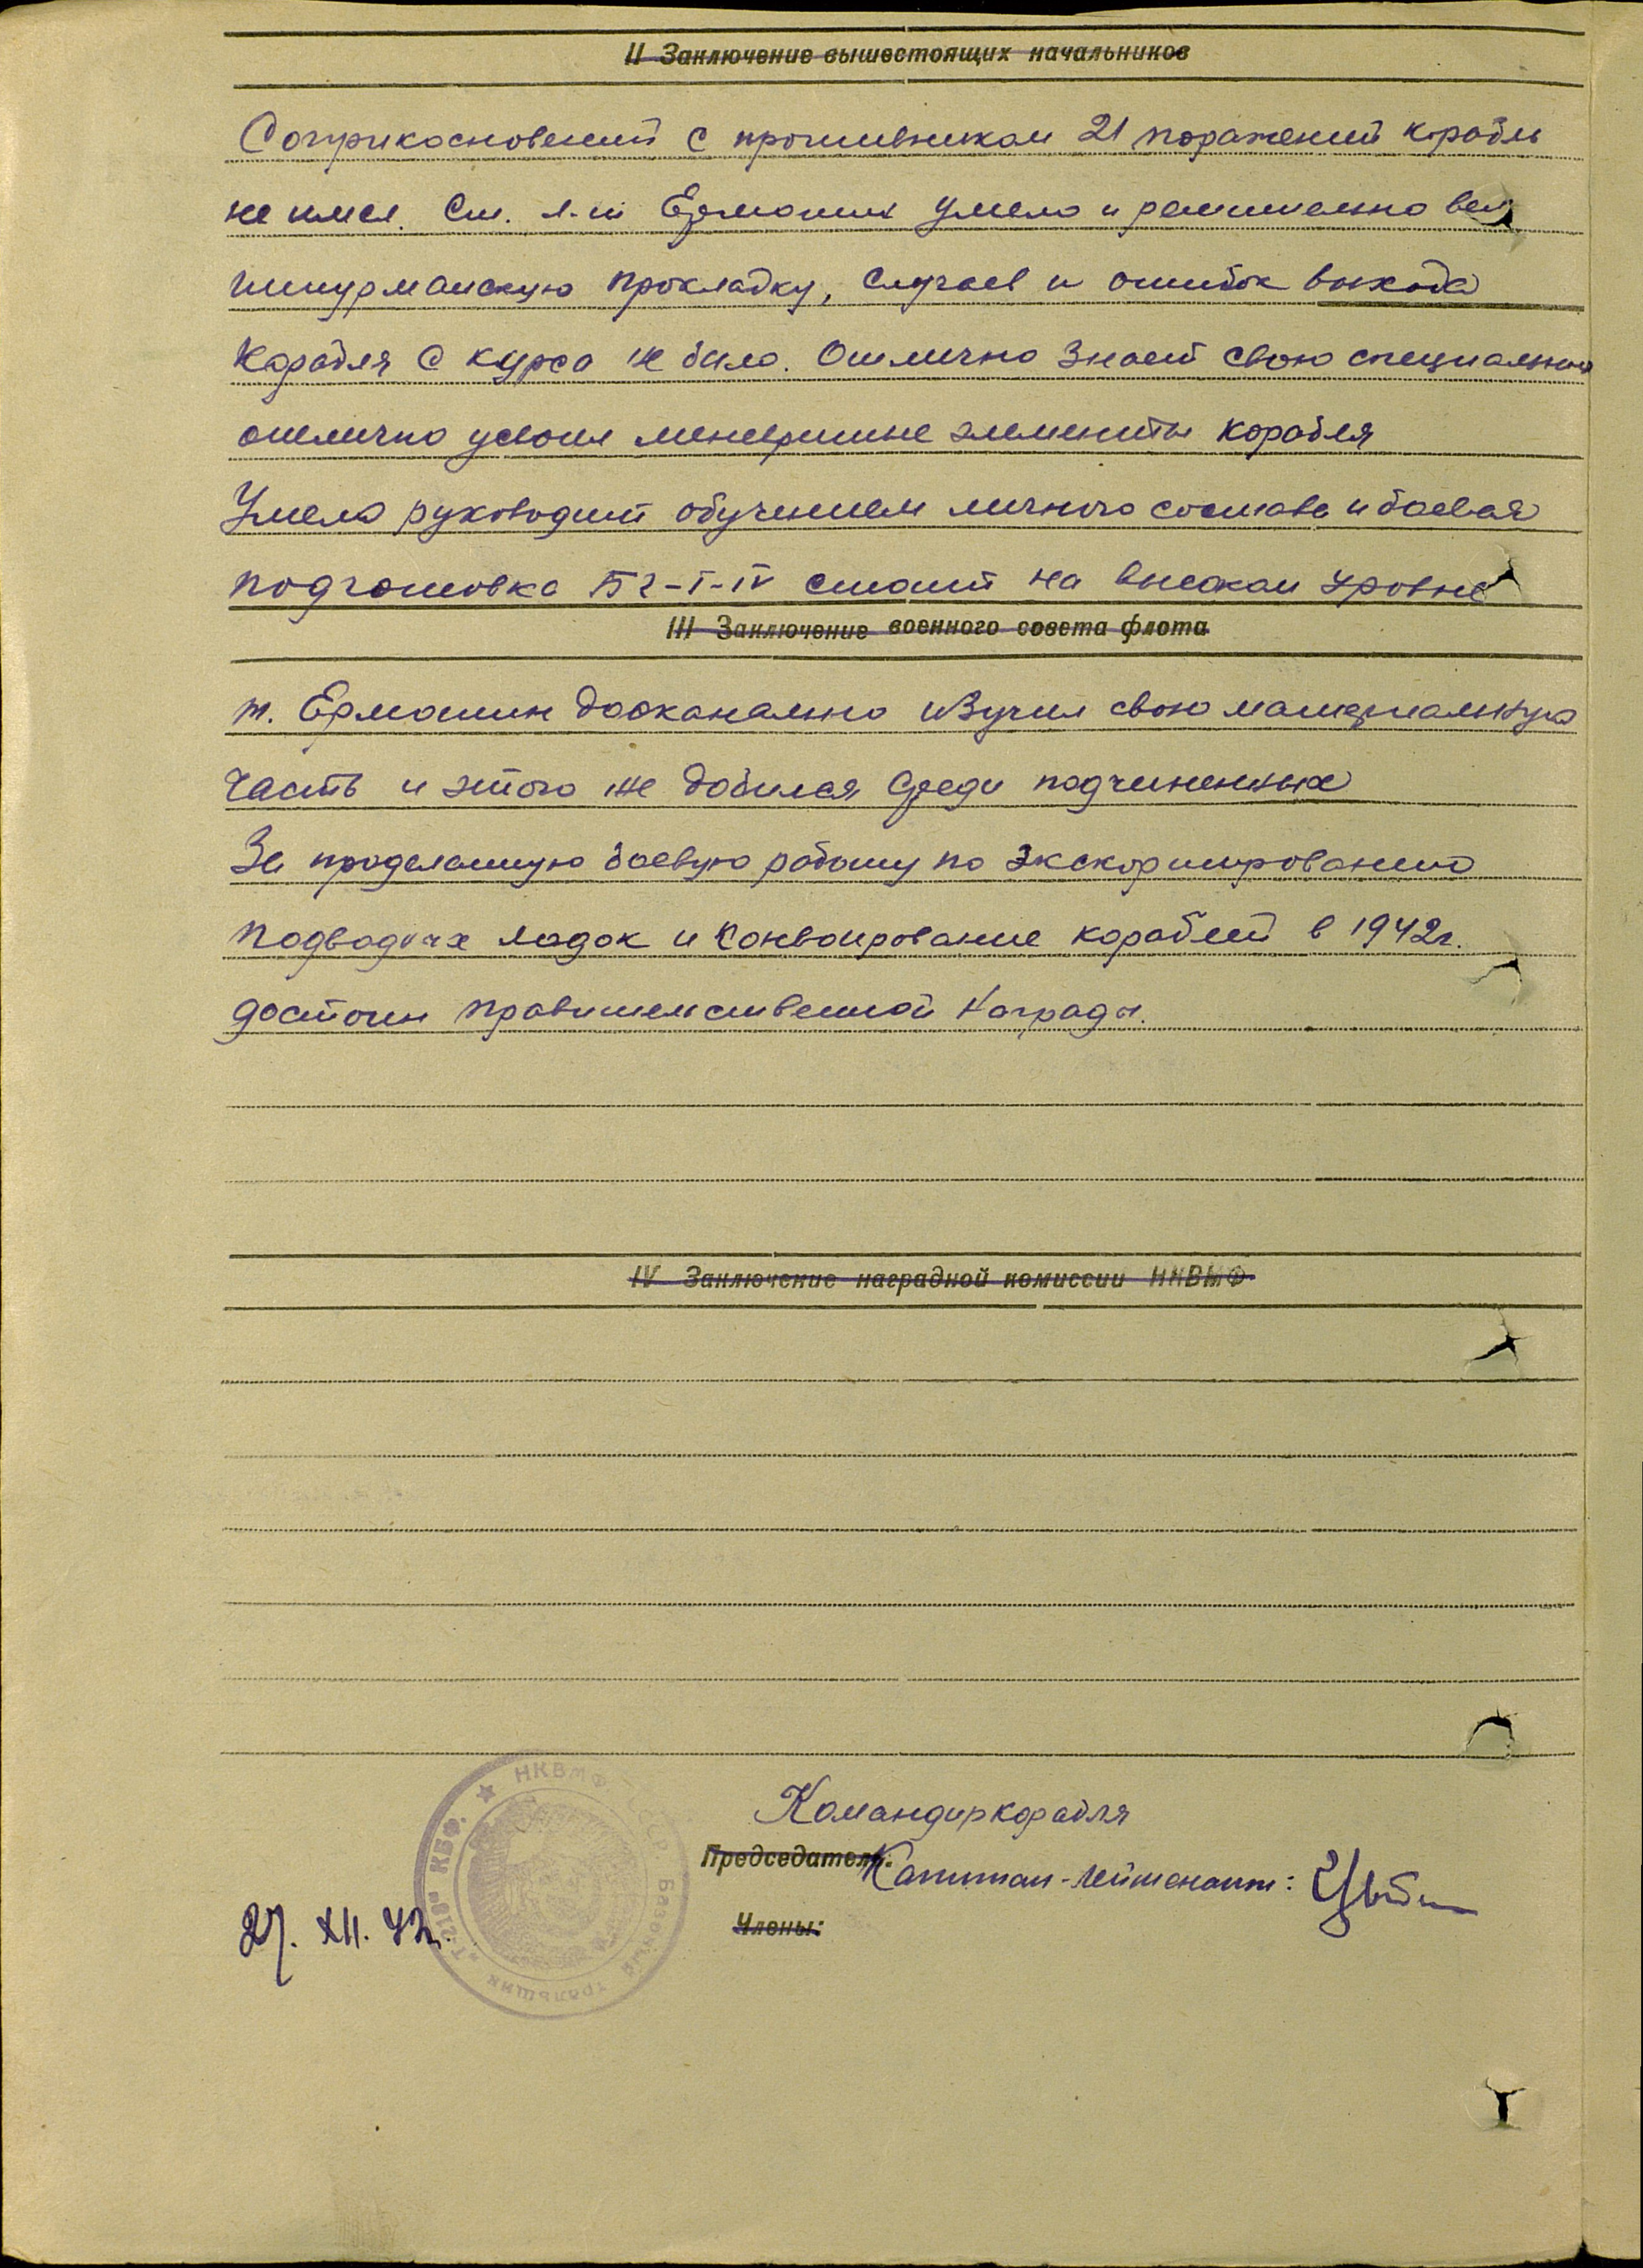 II Заключение вышестоящих начальников
Соприкосновений с противником 21 поражений корабль
не имел. Ст. л-т Ермошин умело и решительно вел
штурманскую прокладку, случаев и ошибок выхода
корабля с курса не было. Отлично знает свою специальн
отлично усвоил маневренные элементы корабля
Умело руководит обучением личного состава и боевая
подготовка БЧ-I-IV стоит на высоком уровне
III Заключение военного совета флота
т. Ермошин досканально изучил свою материальную
часть и этого же добился среди подчиненных
За проделанную боевую работу по экскортированию
подводных лодок и конвоирование кораблей в 1942г.
достоин правительственной награды.
IV Заключение наградной комиссии НКВМФ
НКВМФ - СССР Базовый тральщик "Т-218" КБФ.
Командир корабля
Председатель:
Капитан-лейтенант:
27. XII. 42г.
Члены: